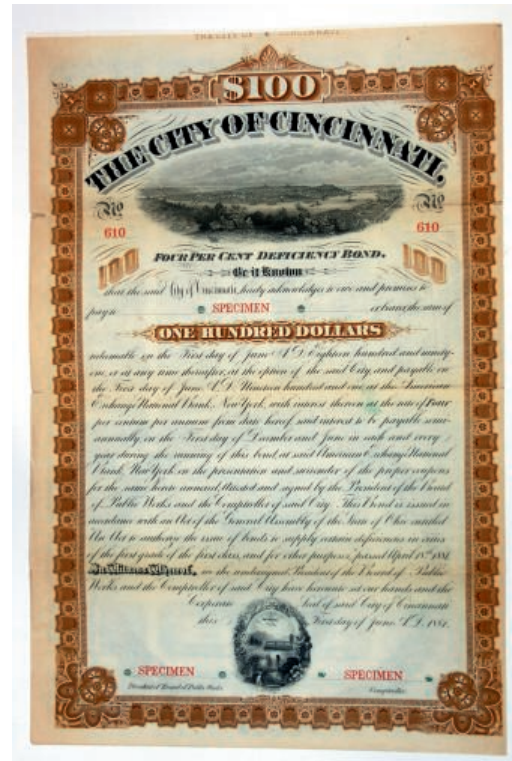 THE CITY OF CINCINNATI
$100
THE CITY OF CINCINNATI.
No No
610 610
100 100
FOUR PER CENT DEFICIENCY BOND.
Be it Known
that the said City of Cincinnati, hereby acknowledges to owe and promises to
pay to SPECIMEN or bearer, the sum of
ONE HUNDRED DOLLARS
redeemable on the First day of June A.D. Eighteen hundred and ninety-
one, or at any time thereafter, at the option of the said City, and payable on
the First day of June A.D. Nineteen hundred and one at the American
Exchange National Bank, New York, with interest thereon at the rate of Four
per centum per annum from date hereof, said interest to be payable semi-
annually on the First day of December and June in each and every
year during the running of this bond, at said American Exchange National
Bank, New York on the presentation and surrender of the proper coupons
for the same hereto annexed, Attested and signed by the President of the Board
of Public Works and the Comptroller of said City. This Bond is issued in
accordance with an Act of the General Assembly of the State of Ohio entitled
An Act to authorize the issue of bonds to supply certain deficiencies in cities
of the first grade of the first class, and for other purposes, passed April 18th 1881.
In Witness Whereof, we the undersigned, President of the Board of Public
Works and the Comptroller of said City have hereunto set our hands and the
Corporate Seal of said City of Cincinnati
this First day of June, A.D. 1881.
SPECIMEN SPECIMEN
President of Board of Public Works Comptroller